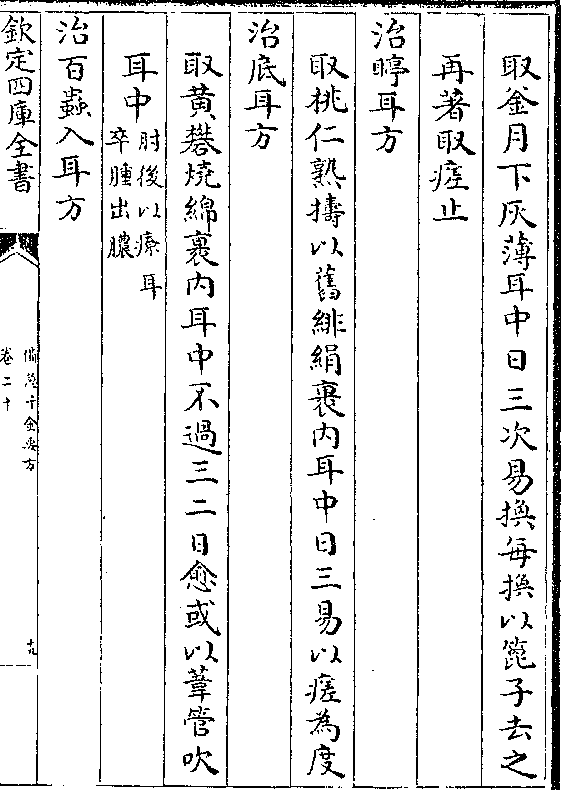 取釜月下灰薄耳中日三次易換每換以篦子去之
再著取瘥止
治聤耳方
取桃仁熟擣以舊緋絹裹内耳中日三易以瘥為度
治底耳方
取黄礬燒綿裹内耳中不過三二日愈或以葦管吹
耳中肘後以療耳
卒腫出膿
治百蟲入耳方
欽定四庫全書
備急千金要方
卷二十
十九